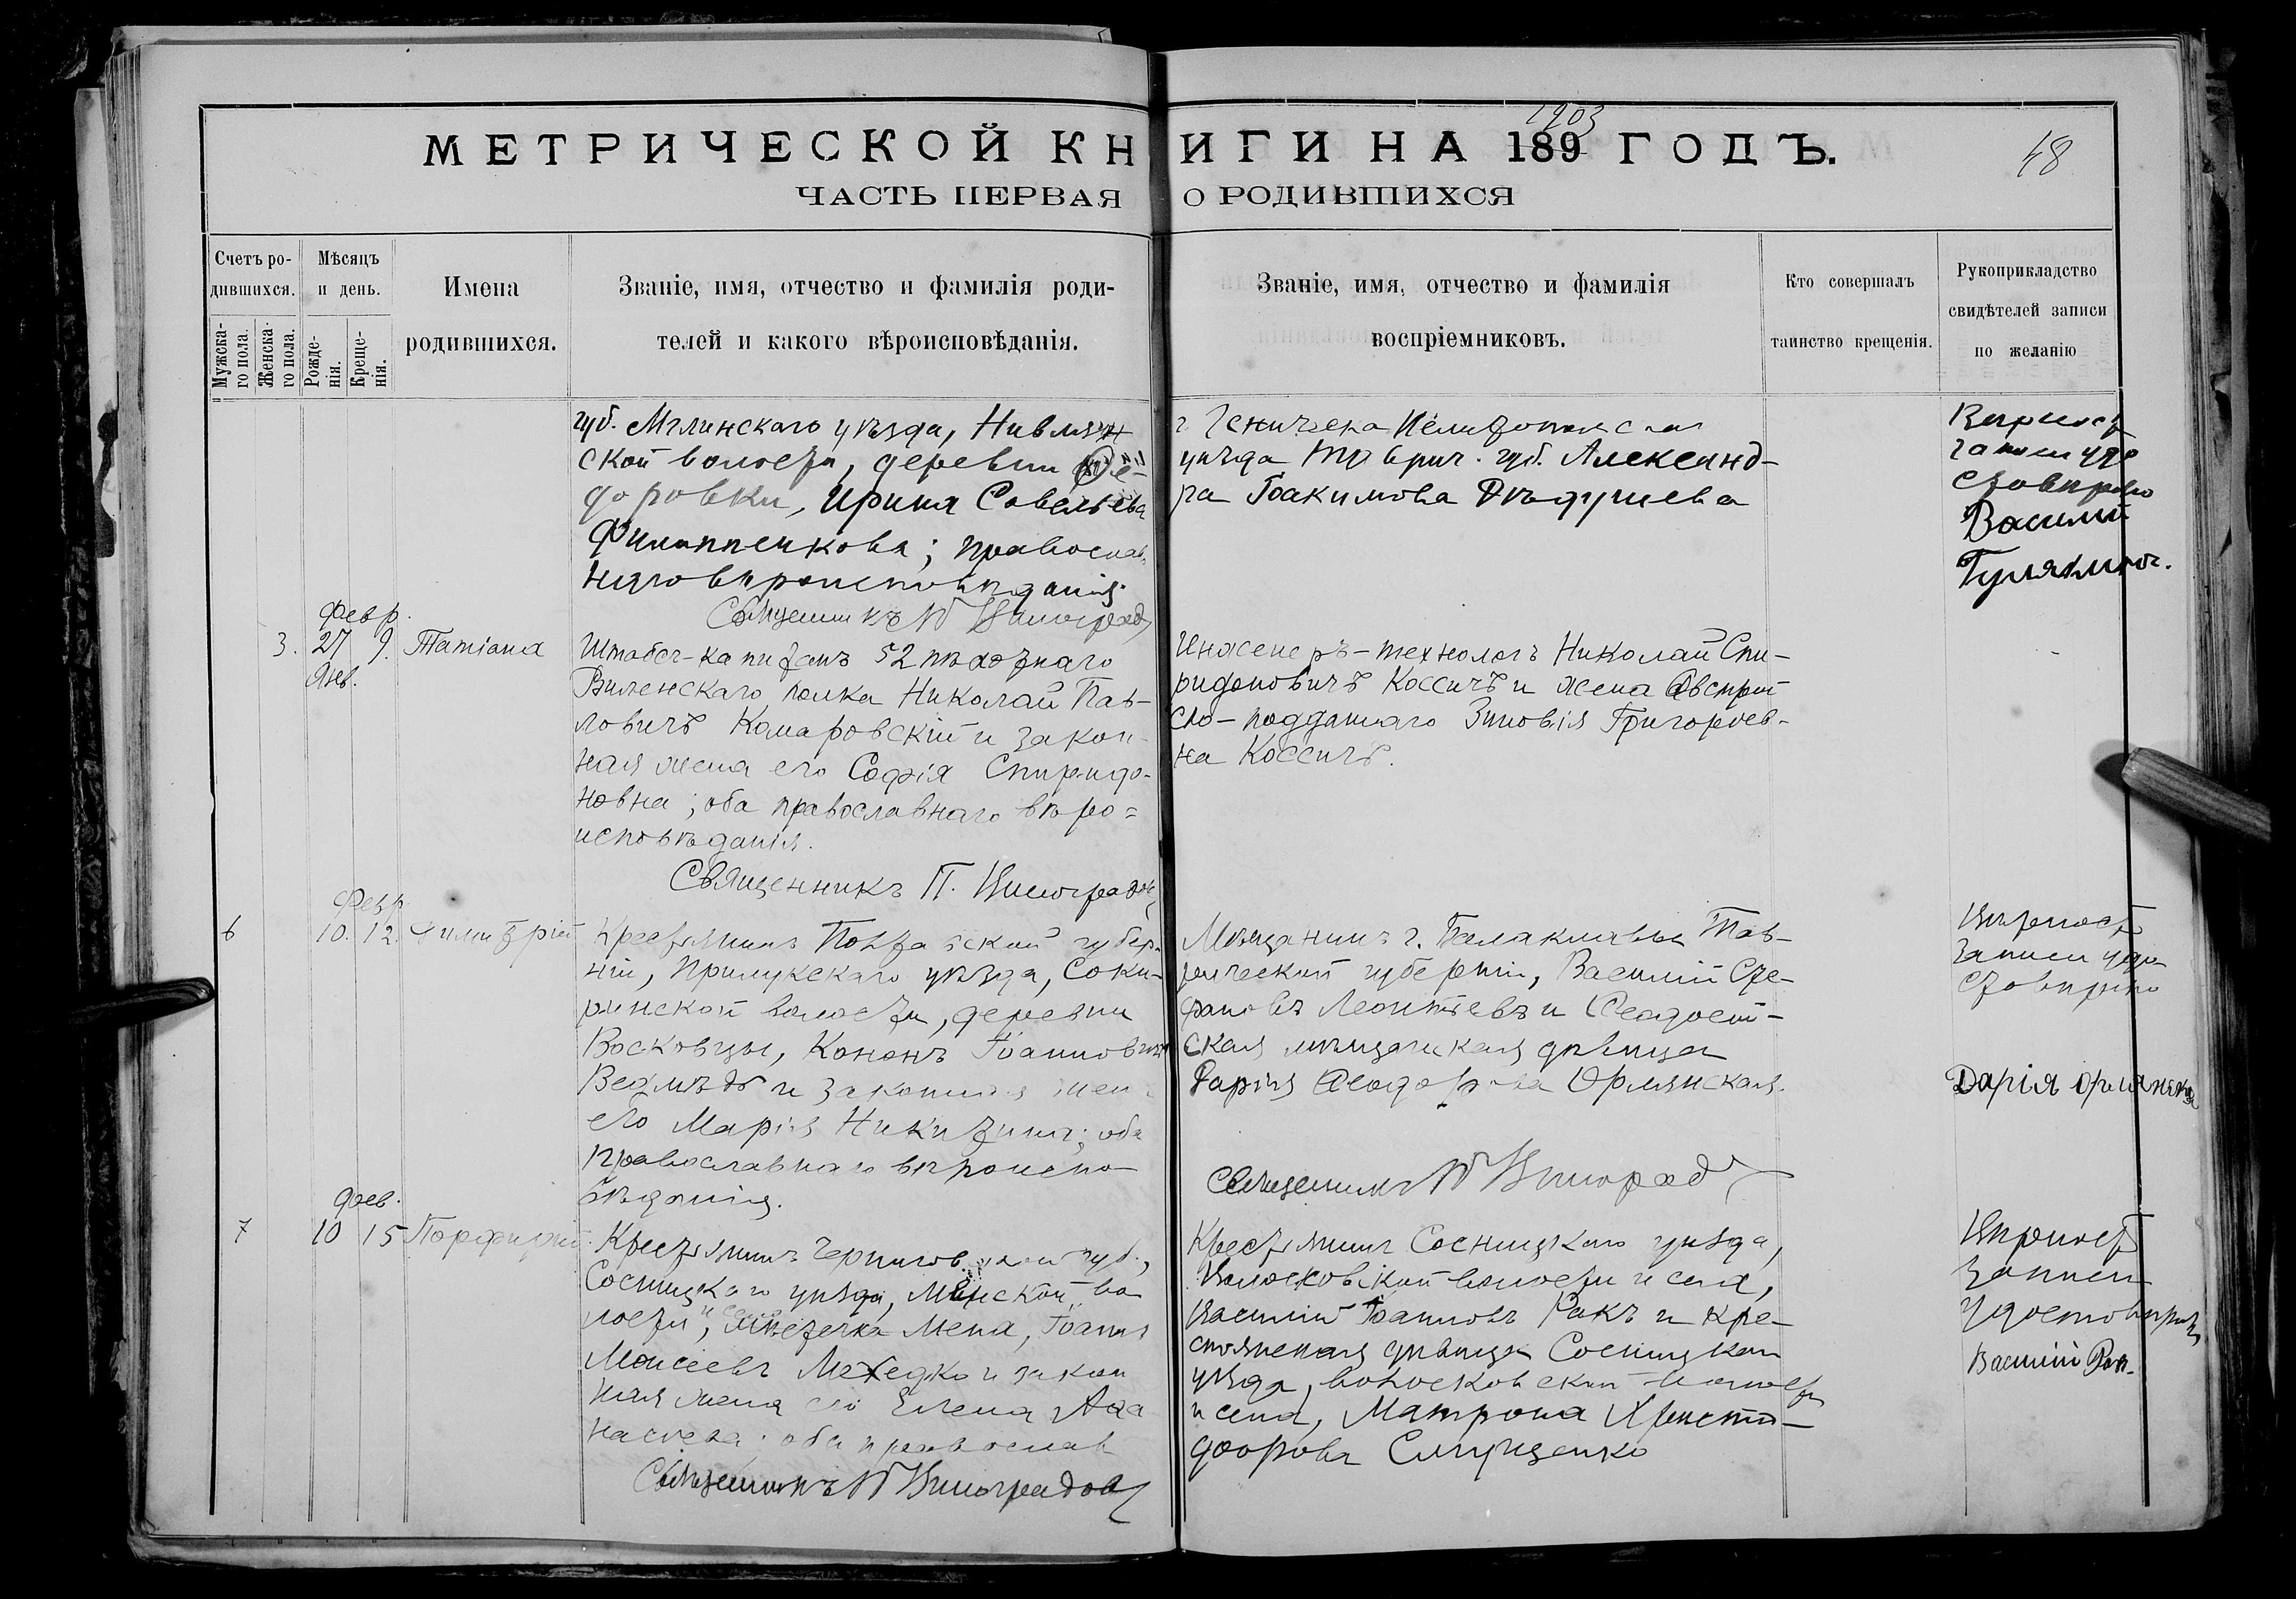 МЕТРИЧЕСКОЙ КНИГИ НА 189 ГОДЪ.
1903
48
ЧАСТЬ ПЕРВАЯ О РОДИВШИХСЯ
Счетъ родившихся.
Мужскаго пола.
Женскаго пола.
Мѣсяцъ и день.
Рожденія.
Крещенія.
Имена
родившихся.
Званіе, имя, отчество и фамилія роди-
телей и какого вѣроисповѣданія.
Званіе, имя, отчество и фамилія
воспріемниковъ.
Кто совершалъ
таинство крещенія.
Рукоприкладство
свидѣтелей записи
по желанію
губ. Мглинскаго уѣзда, Нивлян
ской волости, деревни Ѳе-
доровки, Ирина Савельева
Филиппенкова; православ
наго вѣроисповѣданія.
Священникъ П Виноградов
г. Геническа Мелитопольскаго
уѣзда Таврич. губ. Александ-
ра Іоакимова Дѣдушева
Вѣрность
записи удо
стовѣряю
Василий
3.
Февр.
27 9.
Янв.
Татіана
Штабсъ-капитанъ 52 пѣхотнаго
Виленскаго полка Николай Пав-
ловичъ Комаровскій и закон-
ная жена его Софія Спиридо-
новна; оба православнаго вѣро=
исповѣданія.
Священникъ П. Виноградов
Инженеръ-технологъ Николай Спи-
ридоновичъ Коссичъ и жена Австрій
ско-подданнаго Зиновія Григорьев-
на Коссичъ.
6
Февр
10. 12.
Димитрій
Крестьянинъ Полтавской губер-
ніи, Прилукскаго уѣзда, Соки-
ринской волости, деревни
Восковцы, Кононъ Іоанновичъ
Ведмѣдь и законная жена
его Марія Никитина; оба
православнаго вѣроиспо-
вѣданія.
Мѣщанинъ г. Балаклавы Тав-
рической губерніи, Василій Сте-
фановъ Леонтьевъ и Ѳеодосій-
ская мѣщанская дѣвица
Дарія Ѳеодорова Орлянская.
Священникъ П Виноградов
Вѣрность
записи удо
стовѣряю
Дарія Орлянская
7
Фев.
10 15
Порфирій
Крестьянинъ Черниговской губ.,
Сосницкаго уѣзда, Менской во
лости, мѣстечка Мена, Іоаннъ
Моисеевъ и закон
ная жена его Елена Аѳа
насьева; оба православ
Священникъ П Виноградов
Крестьянинъ Сосницкаго уѣзда,
Волосковской волости и села,
Василій Іоанновъ Ракъ и кре-
стьянская дѣвица Сосницкаго
уѣзда, Волосковской волости
и села, Матрона Христо-
форова
Вѣрность
записи
удостовѣряю
Василій Ракъ.